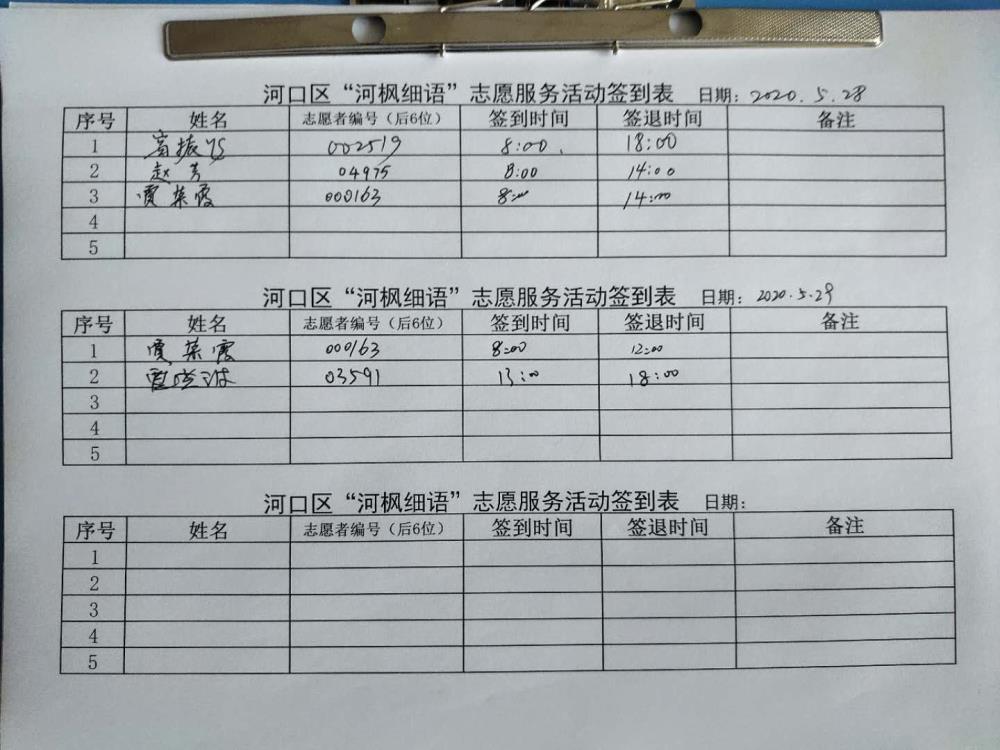 河口区“河枫细语”志愿服务活动签到表 日期：2020.5.28
序号 姓名 志愿者编号（后6位） 签到时间 签退时间 备注
1 002519 8:00 18:00
2 赵芳 04975 8:00 14:00
3 贾荣霞 000163 8:00 14:00
4
5
河口区“河枫细语”志愿服务活动签到表 日期：2020.5.29
序号 姓名 志愿者编号（后6位） 签到时间 签退时间 备注
1 贾荣霞 000163 8:00 12:00
2 03591 13:00 18:00
3
4
5
河口区“河枫细语”志愿服务活动签到表 日期：
序号 姓名 志愿者编号（后6位） 签到时间 签退时间 备注
1
2
3
4
5